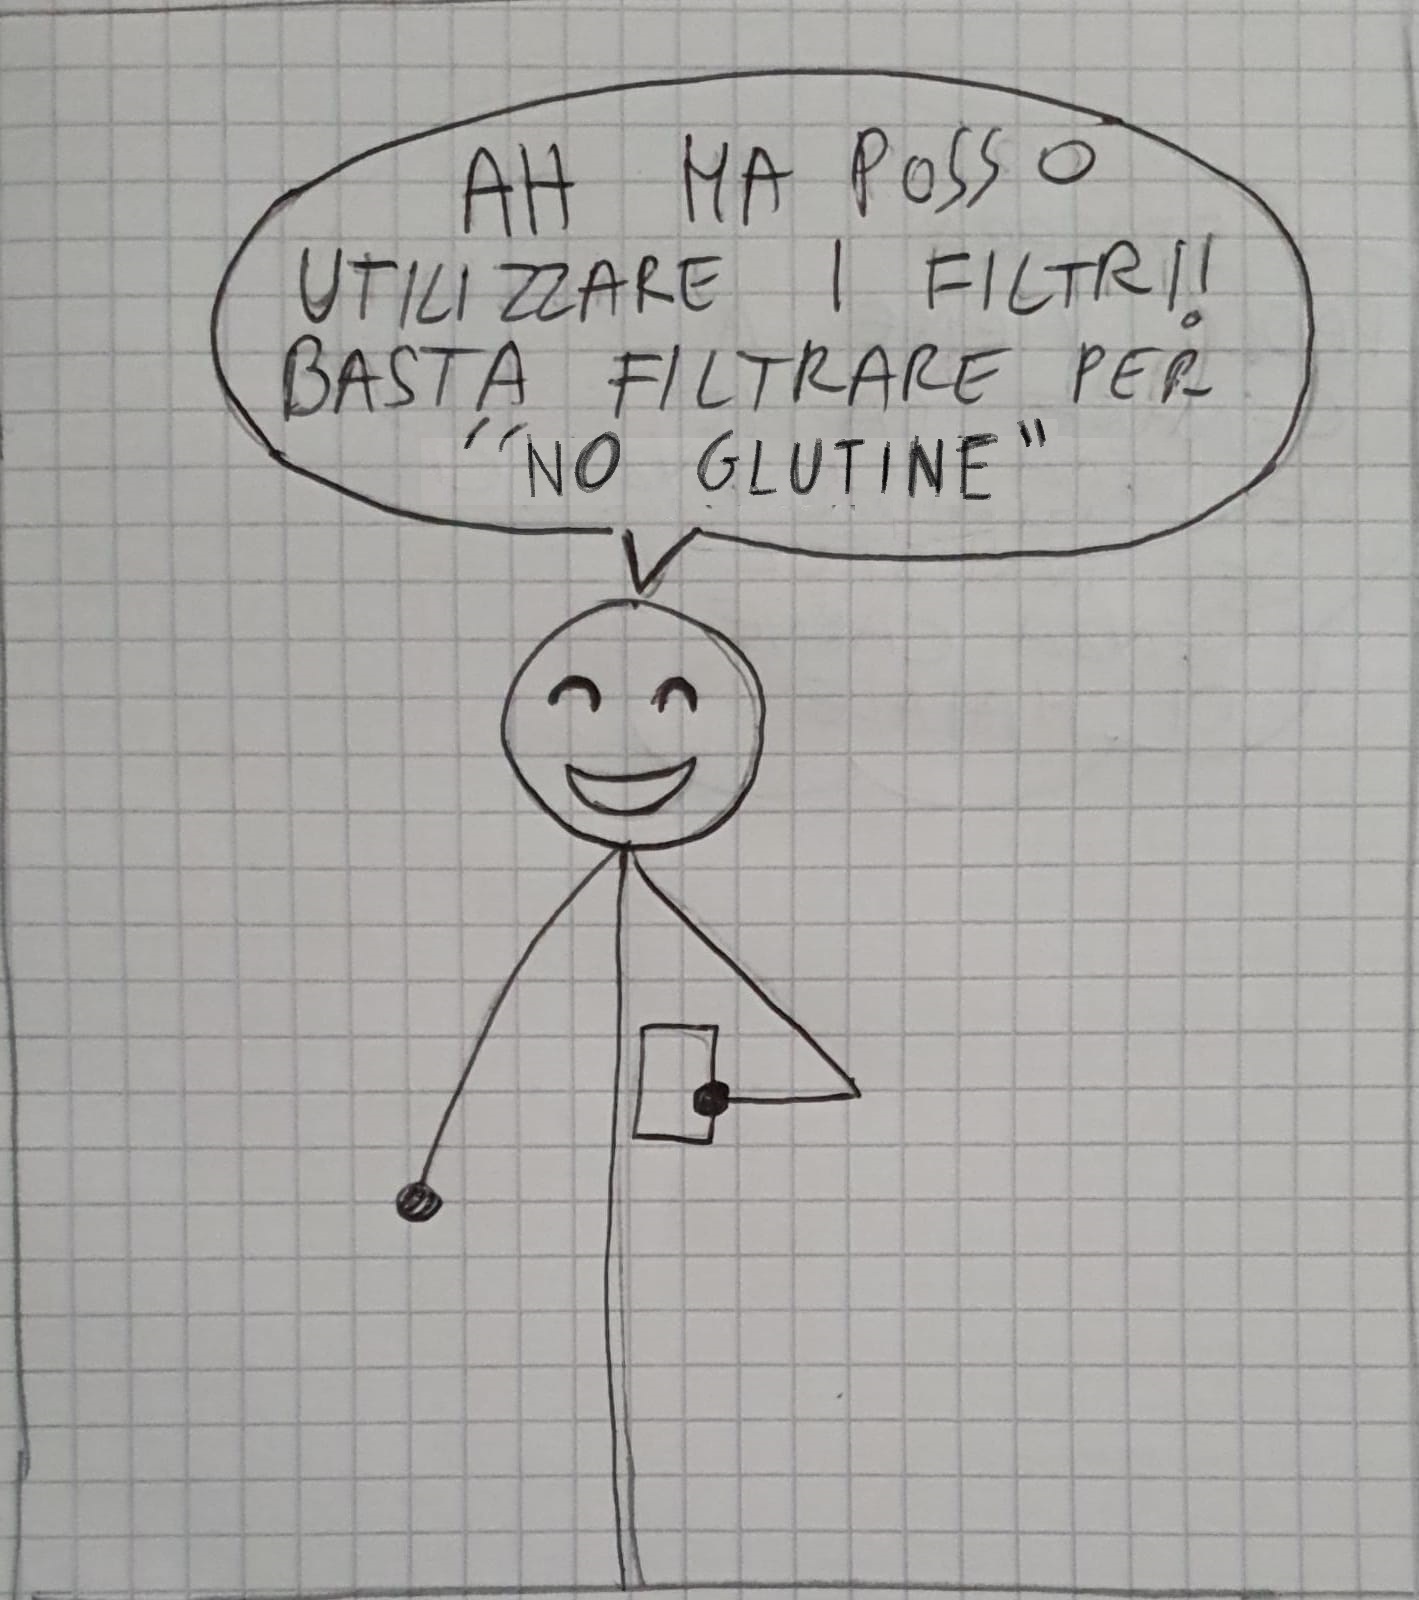 AH MA POSSO
UTILIZZARE I FILTRI!
BASTA FILTRARE PER
"NO GLUTINE"